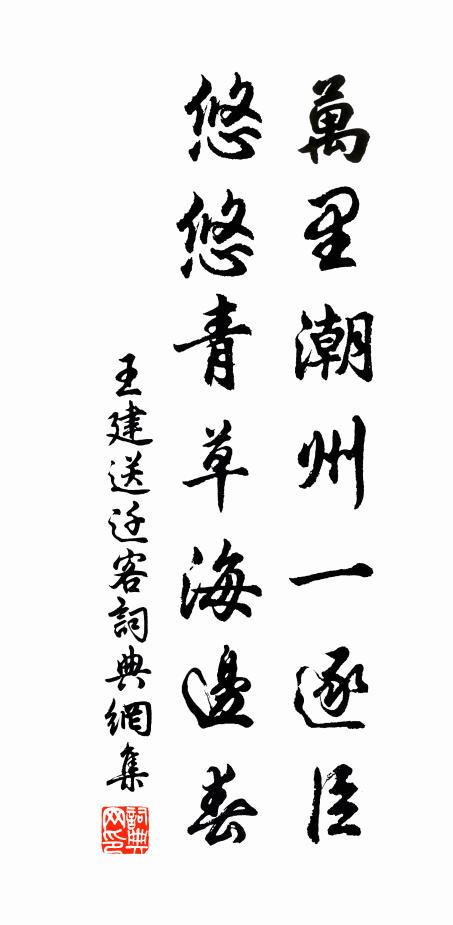 萬里潮州一逐臣
悠悠青草海邊春
王建送迁客詞典網集
詞典
网印